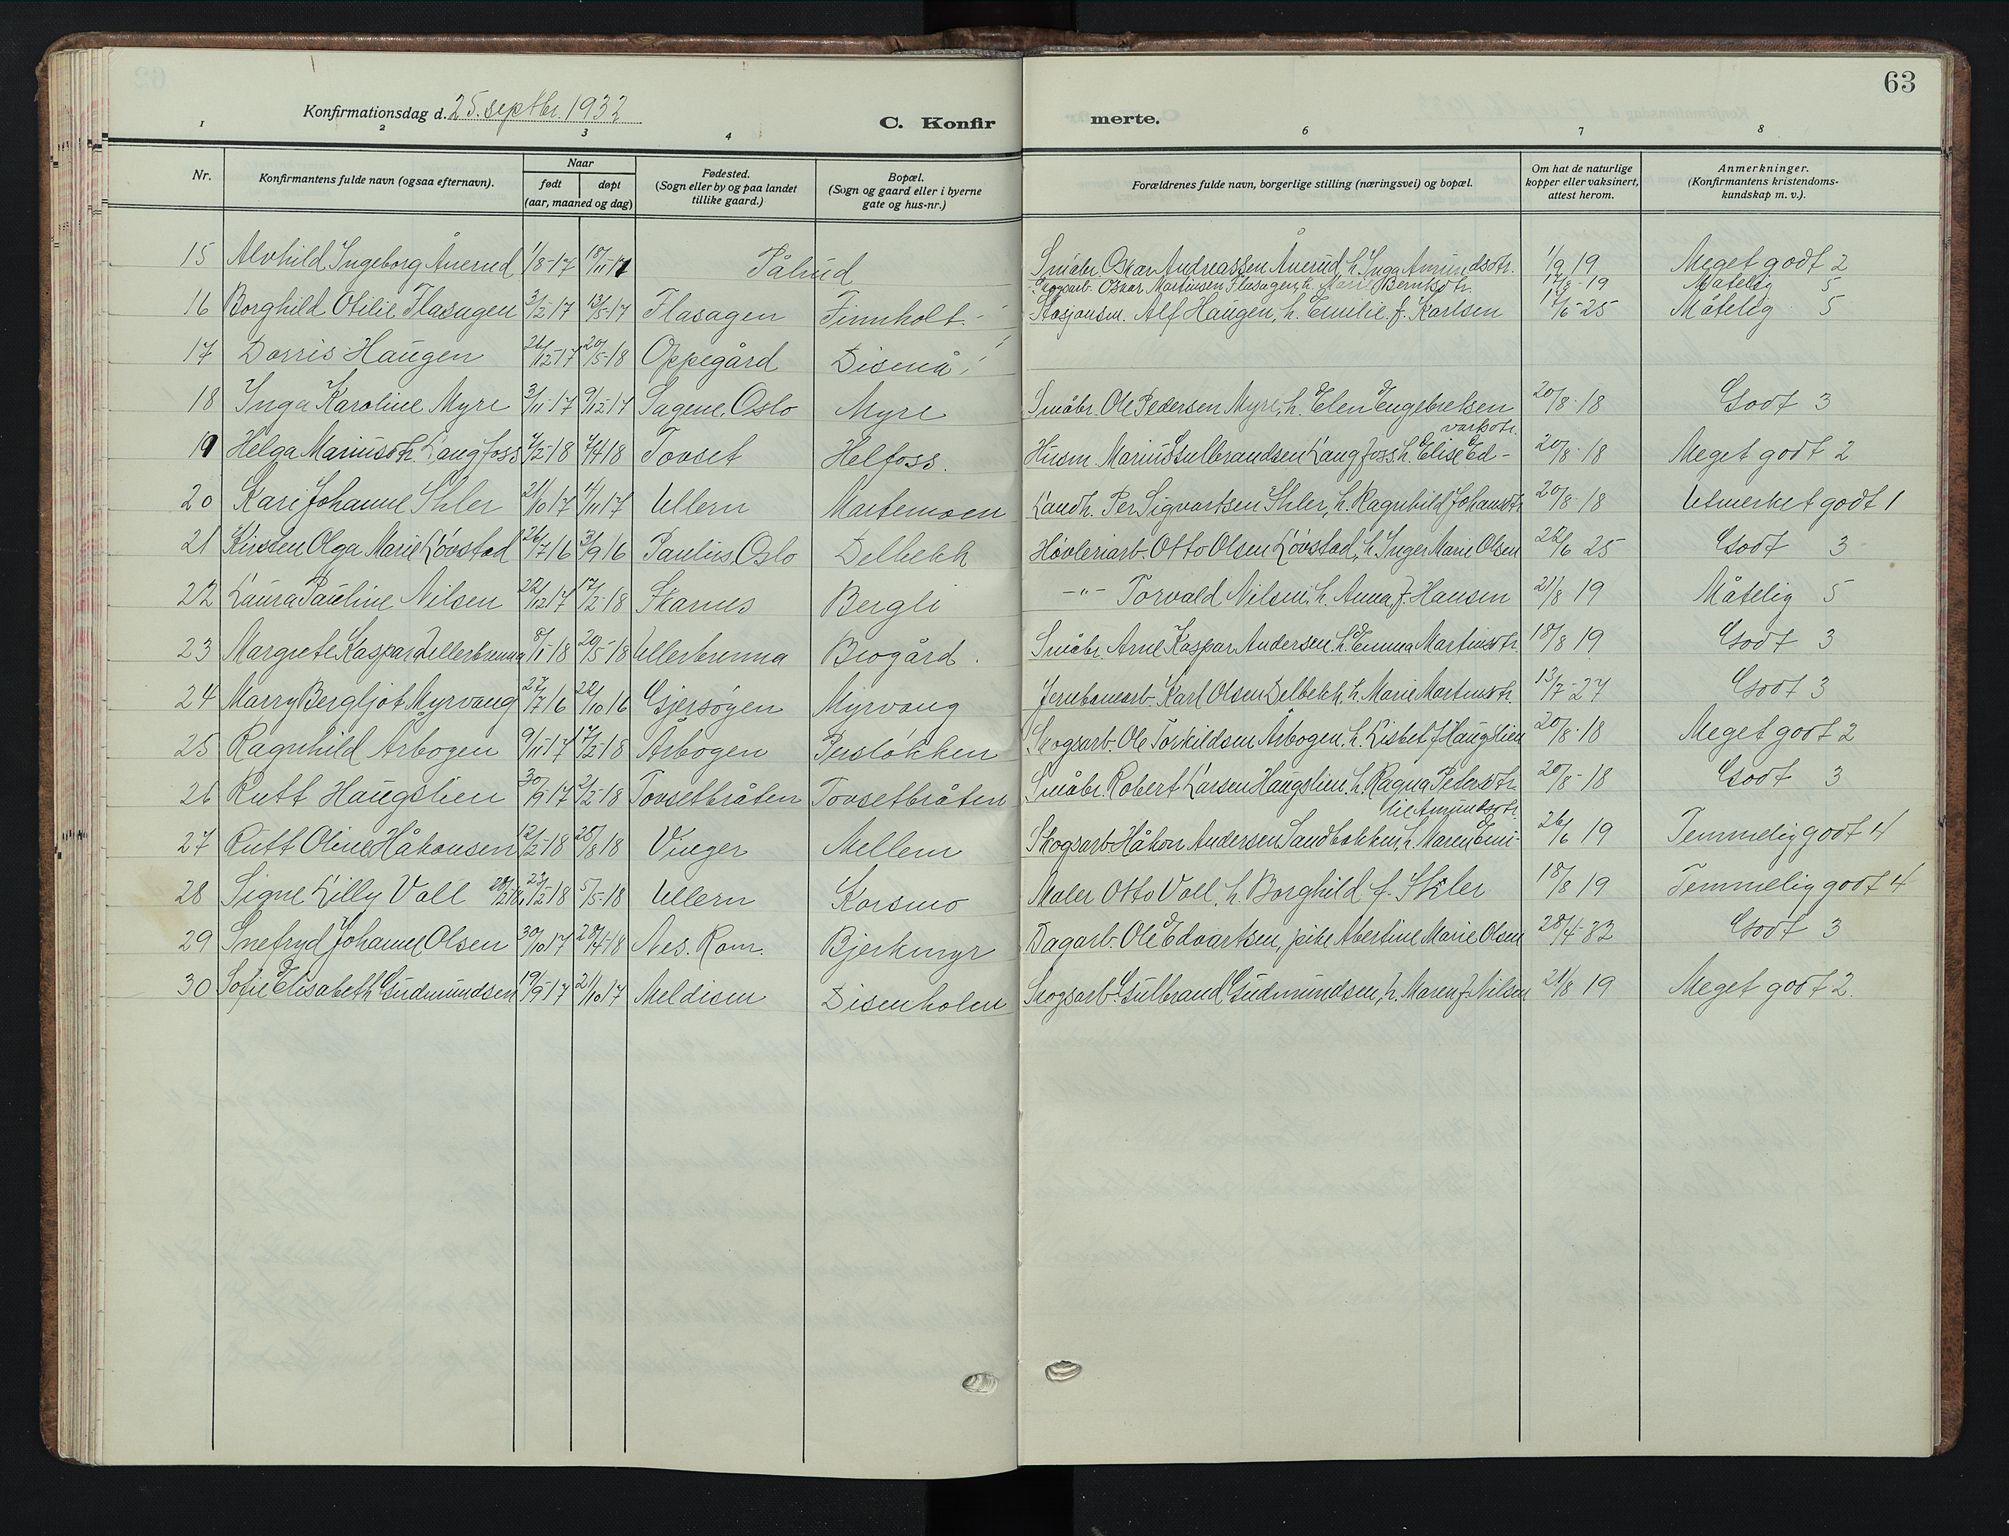 63
Konfirmationsdag d. 25. septbr. 1932
C. Konfirmerte.
1 2 3 4 5 6 7 8
Nr. | Konfirmantens fulde navn (ogsaa efternavn). | Naar født døpt (aar, maaned og dag) | Fødested. (Sogn eller by og paa landet tillike gaard.) | Bopæl. (Sogn og gaard eller i byerne gate og hus-nr.) | Forældrenes fulde navn, borgerlige stilling (næringsvei) og bopæl. | Om hat de naturlige kopper eller vaksinert, attest herom. | Anmerkninger. (Konfirmantens kristendomskundskap m. v.).
15 Alvhild Ingeborg Ånerud 1/8-17 18/11-17 Pålrud Småbr. Oskar Andreassen Ånerud, h. Inga Amundsdtr. 1/9 19 Meget godt 2
16 Borghild Otilie Flasagen 3/2-17 13/5-17 Flasagen Finnholt Skogsarb. Oskar Martinsen Flasagen, h. Marie Berntsdtr. 17/8-19 Måtelig 5
17 Dorris Haugen 26/12-17 20/5-18 Oppegård Disenå Stasjonsm. Alf Haugen, h. Emilie f. Karlsen 17/6-25 Måtelig 5
18 Inga Karoline Myre 3/11-17 9/12-17 Sagene, Oslo Myre Småbr. Ole Pedersen Myre, h. Elen Engebretsen 20/8-18 Godt 3
19 Helga Mariusdtr. Langfoss 7/2-18 7/4 18 Tovset Helfoss. Husm. Marius Gulbrandsen Langfoss h. Elise Edvartsdtr. 20/8-18 Meget godt 2
20 Kari Johanne Ihler 21/10 17 4/11 17 Ullern Martemoen Landh. Per Sigvartsen Ihler, h. Ragnhild Johansdtr 20/8-18 Utmerket godt 1
21 Kirsten Olga Marie Løvstad 26/7 16 3/9 16 Paulus, Oslo Delbekk Høvleriarb. Otto Olsen Løvstad, h. Inger Marie Olsen 22/6 25 Godt 3
22 Laura Pauline Nilsen 22/12 17 17/2-18 Skarnes Bergli -"- Torvald Nilsen, h. Anna f. Hansen 21/8 19 Måtelig 5
23 Margrete Kaspara Ullerbrenna 8/1-18 20/5-18 Ullerbrenna Brogård. Småbr. Arne Kaspar Andersen, h. Emma Martinsdtr. 18/8 19 Godt 3
24 Marry Bergljot Myrvang 27/7 16 22/10 16 Gjersøyen Myrvang Jernbanearb. Karl Olsen Delbekk h. Marie Martinsdtr. 13/7-27 Godt 3
25 Ragnhild Årbogen 9/11-17 17/2-18 Årbogen Persløkken Skogsarb. Ole Torkildsen Årbogen, h. Lisbet f. Haugslien 20/8-18 Meget godt 2
26 Rutt Haugslien 30/9 17 2/2-18 Tovsetbråten Tovsetbråten Småbr. Robert Larsen Haugslien, h. Ragna Petersdtr. 20/8-18 Godt 3
27 Rutt Oline Håkonsen 12/2-18 25/8 18 Vinger Mellem Skogsarb. Håkon Andersen Sandbakken, h. Maren Emilie Amundsdtr. 26/6 19 Temmelig godt 4
28 Signe Lilly Voll 28/2 18, 23/2 18 5/5-18 Ullern Korsmo Maler Otto Voll, h. Borghild f. Ihler 18/8 19 Temmelig godt 4
29 Snefryd Johanne Olsen 30/10 17 28/4-18 Nes. Rom. Bjerkmyr Dagarb. Ole Edvartsen, pike Abertine Marie Olsen 28/4-32 Godt 3
30 Sofie Elisabeth Gudmundsen 19/9-17 21/10 17 Meldisen Disenholen Skogsarb. Gulbrand Gudmundsen, h. Maren f. Nilsen 21/8 19 Meget godt 2.